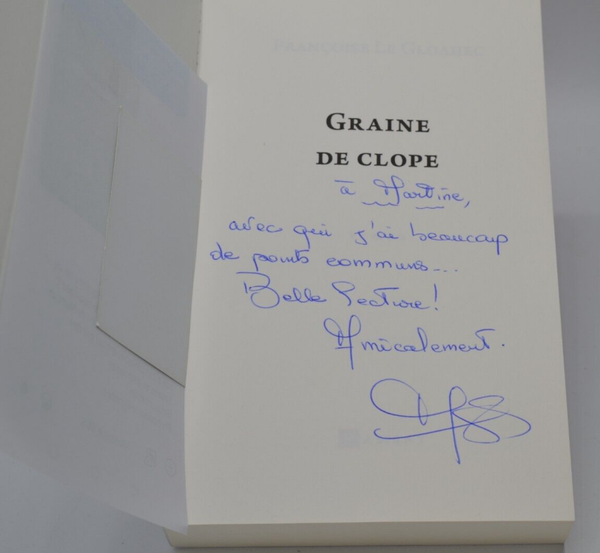 FRANÇOISE LE GLOAHEC
GRAINE
DE CLOPE
à Martine,
avec qui j'ai beaucoup
de points communs...
Belle lecture!
Amicalement.